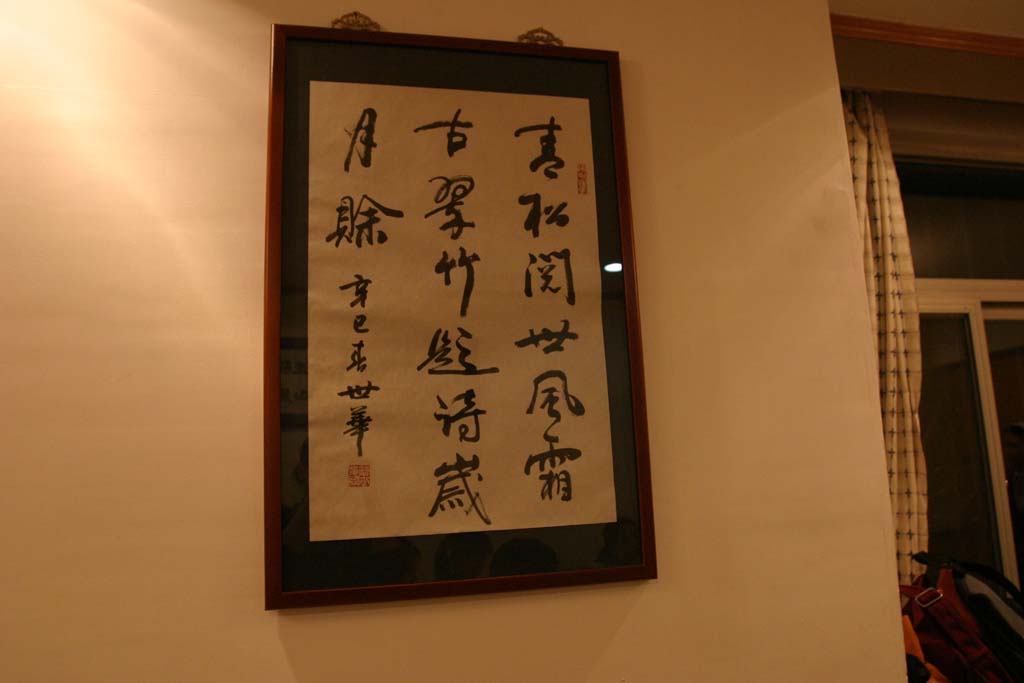 青松閱世風霜
古翠竹題詩歲
月賒
辛巳春世華